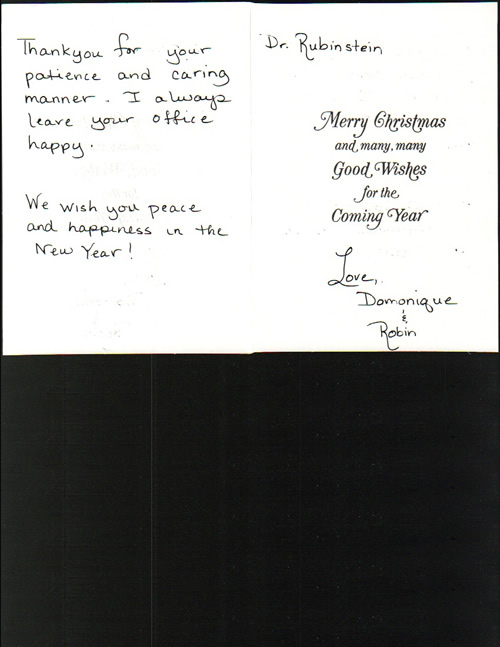 Thankyou for your
patience and caring
manner. I always
leave your office
happy.
We wish you peace
and happiness in the
New Year!
Dr. Rubinstein
Merry Christmas
and, many, many
Good Wishes
for the
Coming Year
Love,
Domonique
&
Robin